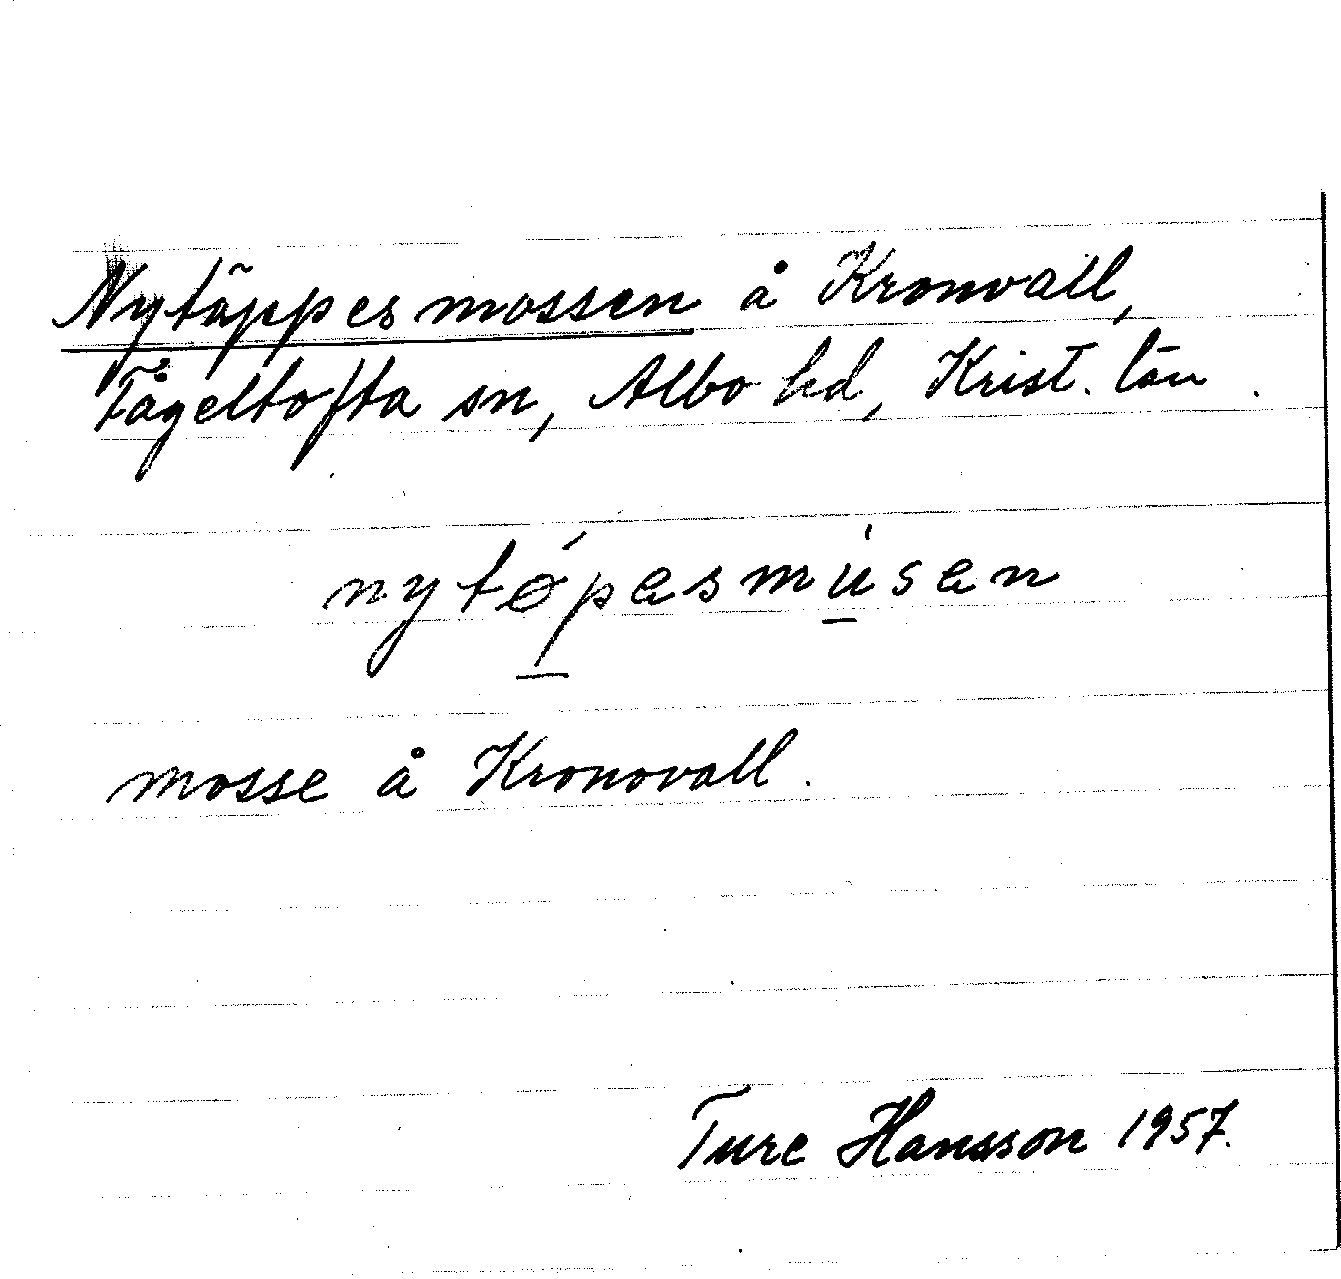 Nytäppesmossen å Kronvall,
Fågeltofta sn, Albo hd, Krist. län.
nytøpesmusen
mosse å Kronovall.
Ture Hansson 1957.